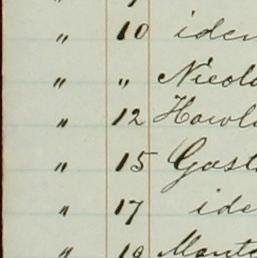 " 10 iden
" " Nicol
" 12 Howl
" 15 Gast
" 17 ide
" 19 Mont